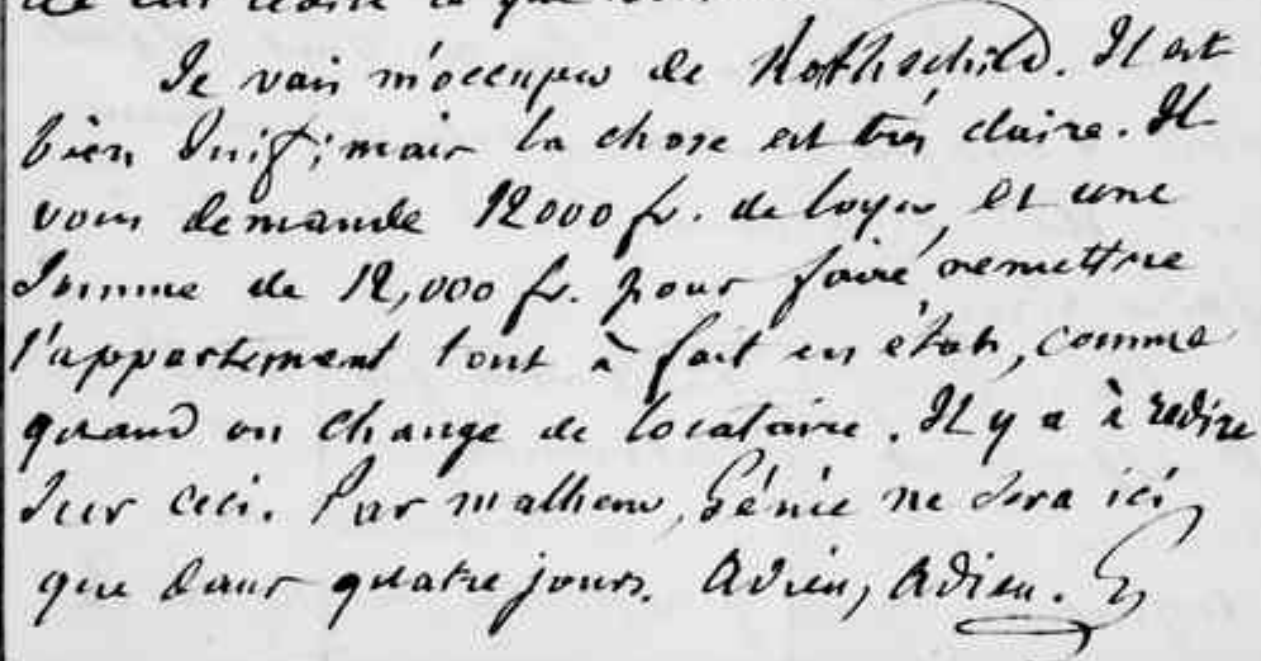 Je vais m'occuper de Rothschild. Il est
bien Juif ; mais la chose est très claire. Il
vous demande 12000 fr. de loyer, et une
somme de 12,000 fr. pour faire remettre
l'appartement tout à fait en état, comme
quand on change de locataire. Il y a à redire
sur ceci. Par malheur, Génie ne sera ici
que dans quatre jours. Adieu, Adieu. G